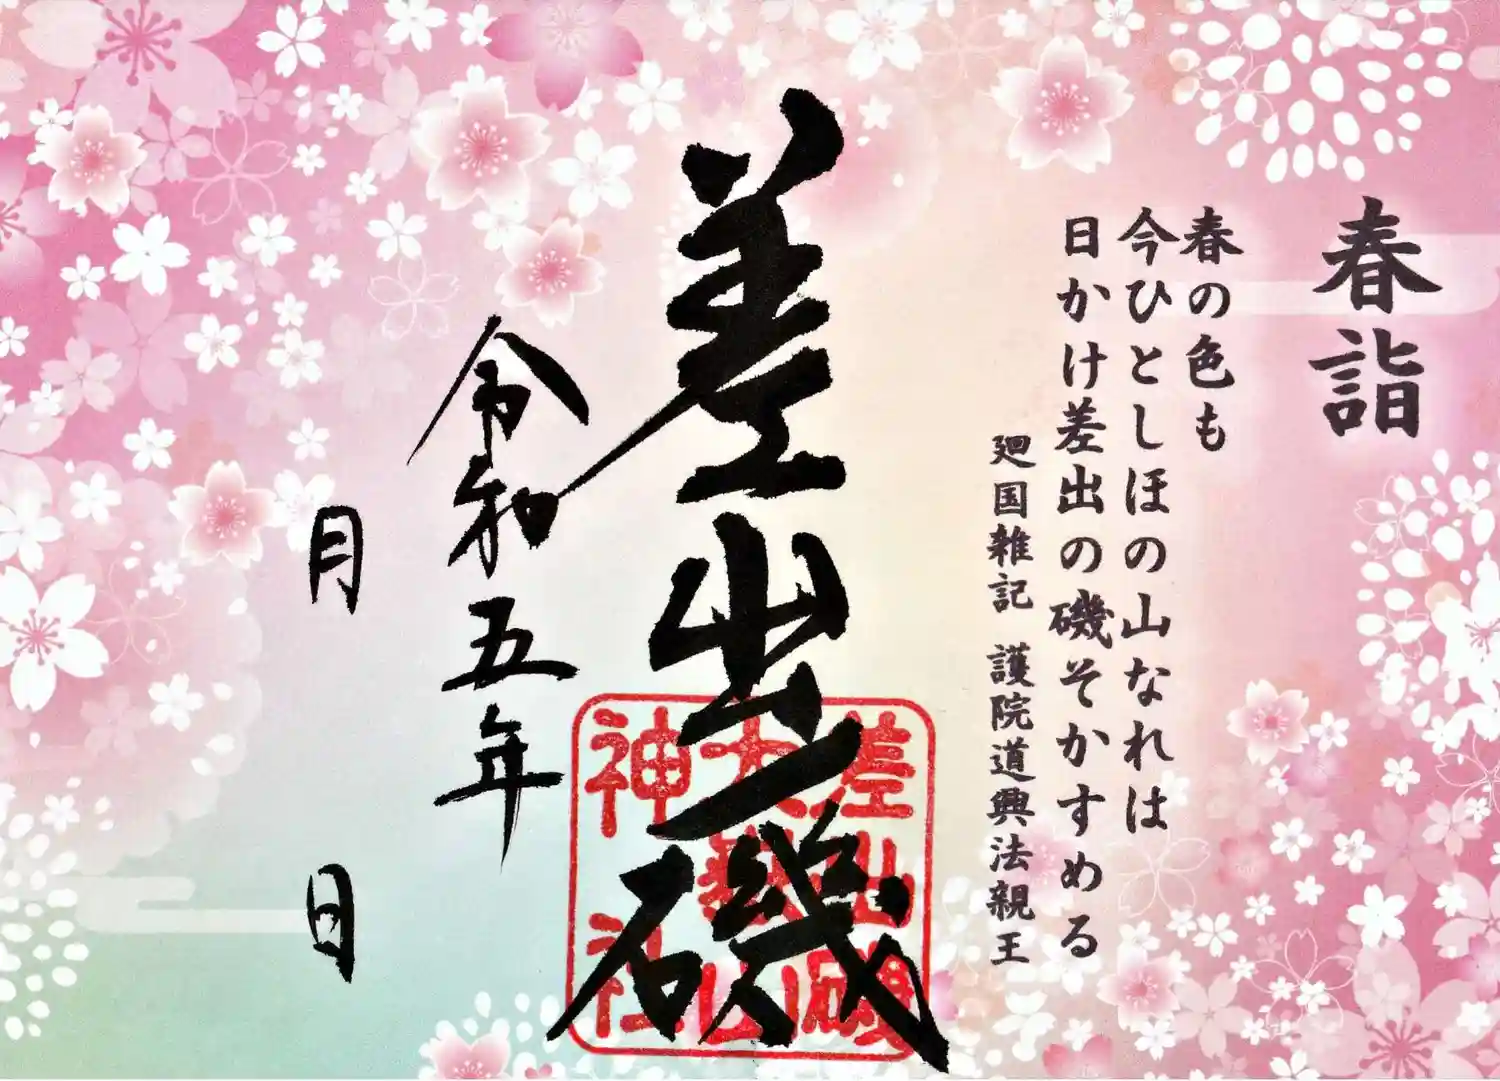 春詣
春の色も
今ひとしほの山なれは
日かけ差出の磯そかすめる
廻国雑記 護院道興法親王
差出磯
令和五年
月 日
差出磯
大嶽山
神社